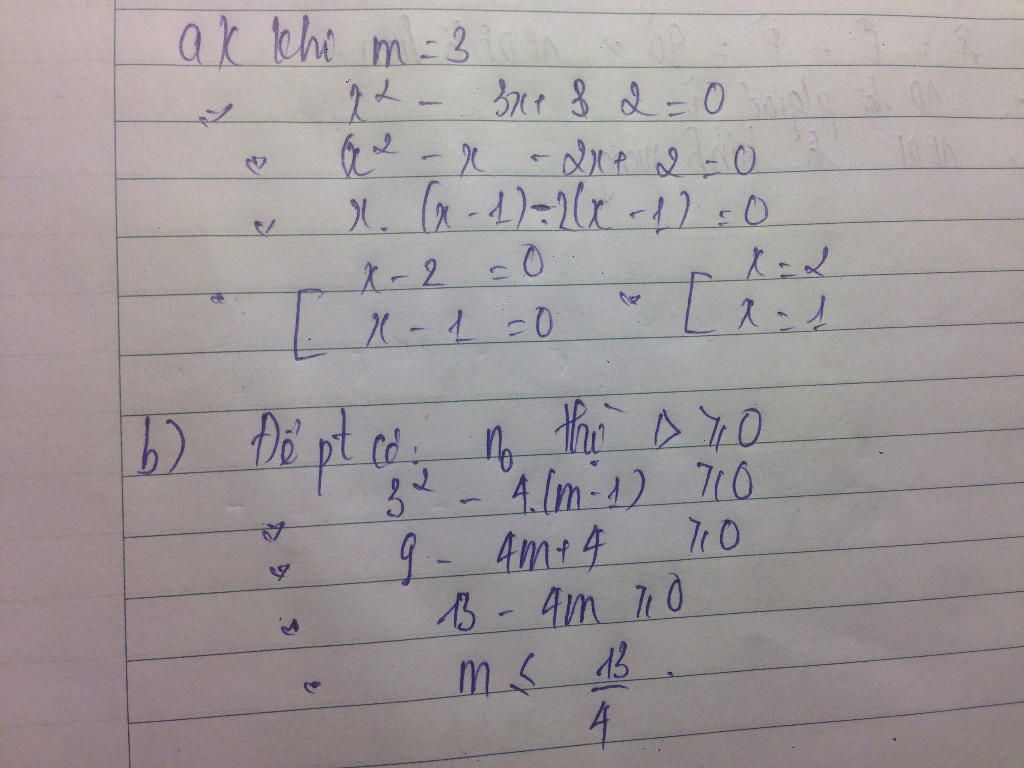 a) khi m = 3
=> x² - 3x + 2 = 0
<=> x² - x - 2x + 2 = 0
<=> x. (x - 1) - 2(x - 1) = 0
<=> [ x - 2 = 0 <=> [ x = 2
x - 1 = 0 x = 1
b) Để pt có n₀ thì Δ ≥ 0
<=> 3² - 4.(m - 1) ≥ 0
<=> 9 - 4m + 4 ≥ 0
<=> 13 - 4m ≥ 0
<=> m ≤ 13/4.